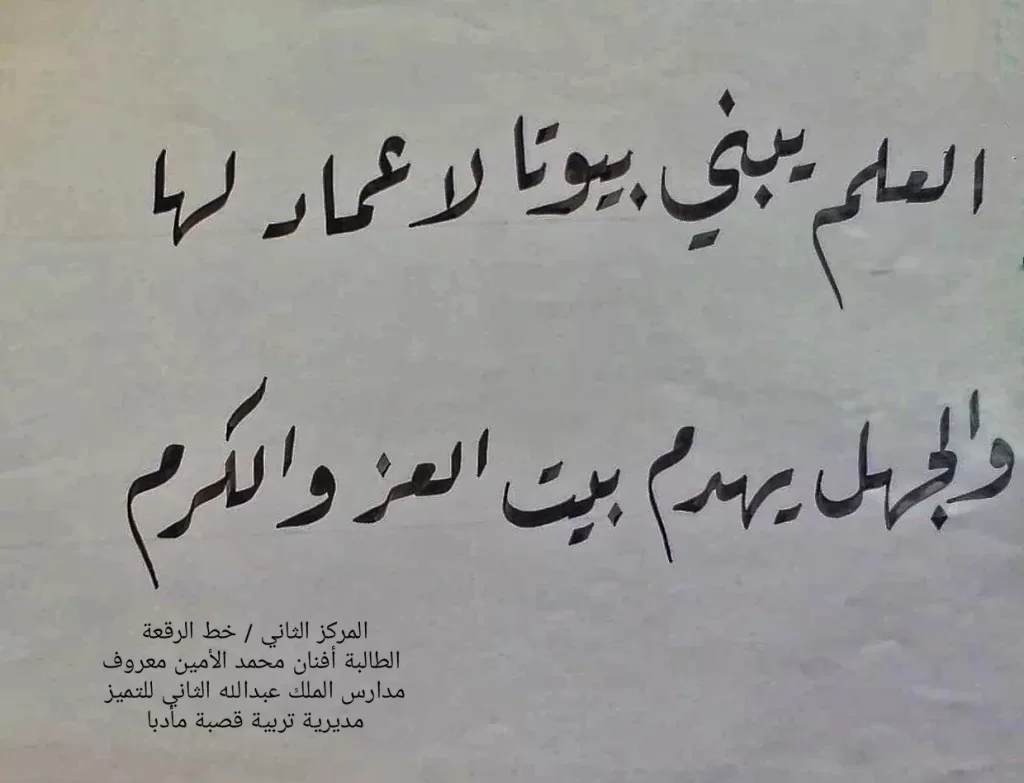 العلم يبني بيوتا لا عماد لها
والجهل يهدم بيت العز والكرم
المركز الثاني / خط الرقعة
الطالبة أفنان محمد الأمين معروف
مدارس الملك عبدالله الثاني للتميز
مديرية تربية قصبة مأدبا